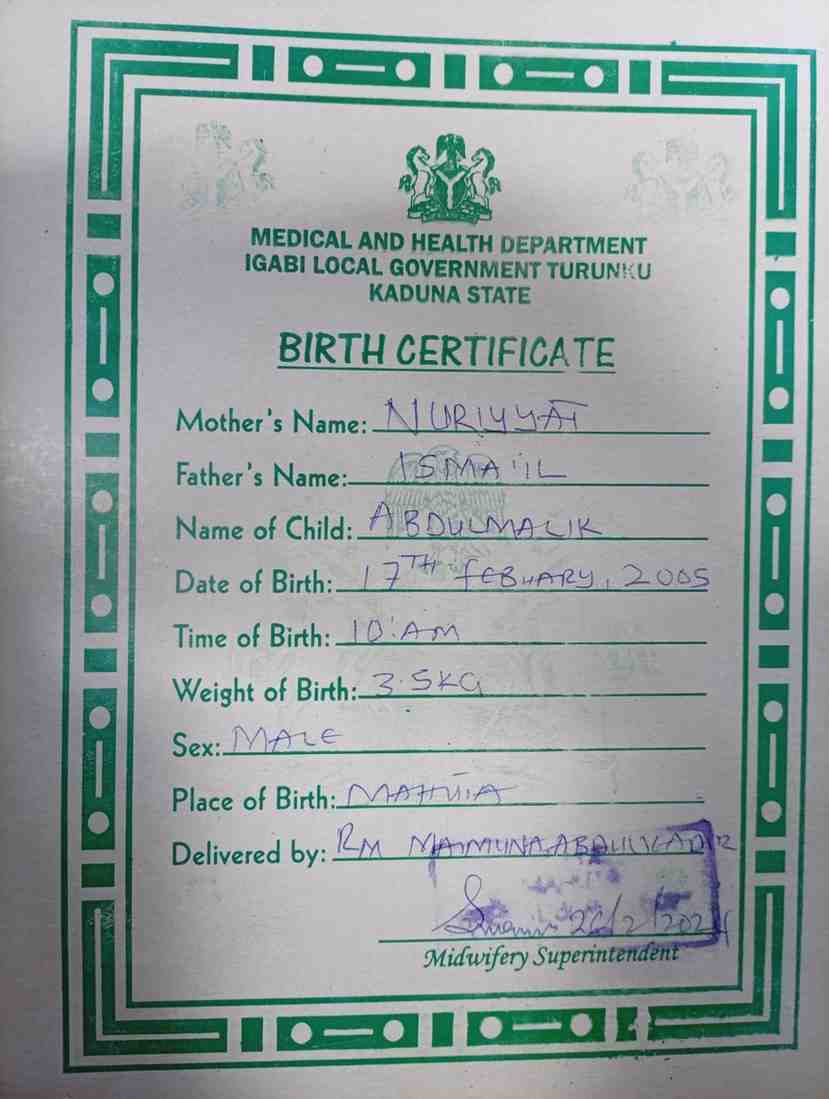 MEDICAL AND HEALTH DEPARTMENT
IGABI LOCAL GOVERNMENT TURUNKU
KADUNA STATE
BIRTH CERTIFICATE
Mother's Name: NURIYYAT
Father's Name: ISMA'IL
Name of Child: ABDULMALIK
Date of Birth: 17TH FEBUARY, 2005
Time of Birth: 10:AM
Weight of Birth: 3.5KG
Sex: MALE
Place of Birth:
Delivered by: RM MAIMUNA ABDULKADIR
26/2/2024
Midwifery Superintendent